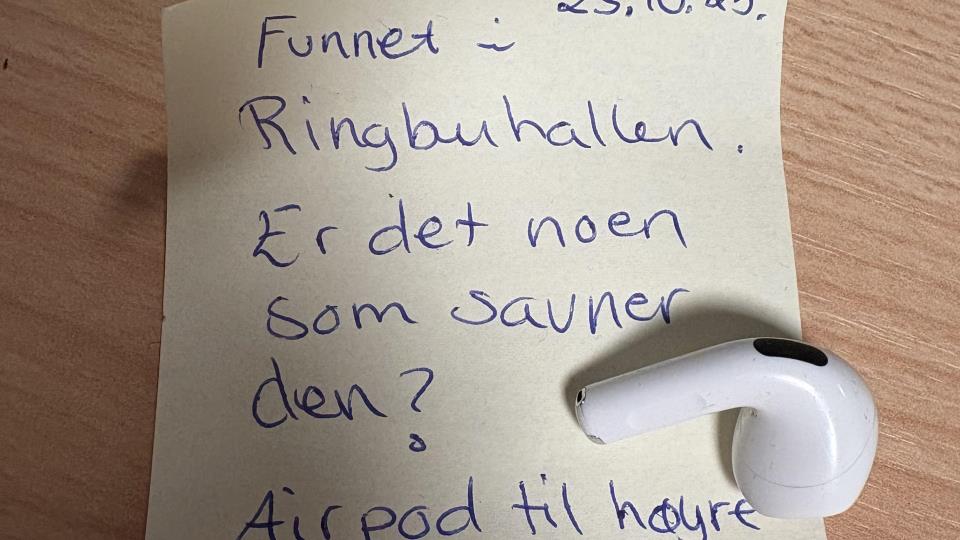 23.10.25.
Funnet i
Ringbuhallen.
Er det noen
som savner
den?
Airpod til høyre